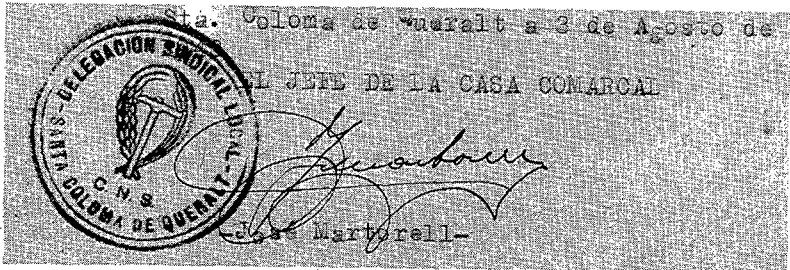 Sta. Coloma de Queralt a 3 de Agosto de
EL JEFE DE LA CASA COMARCAL
DELEGACION SINDICAL LOCAL
C.N.S.
SANTA COLOMA DE QUERALT
-José Martorell-